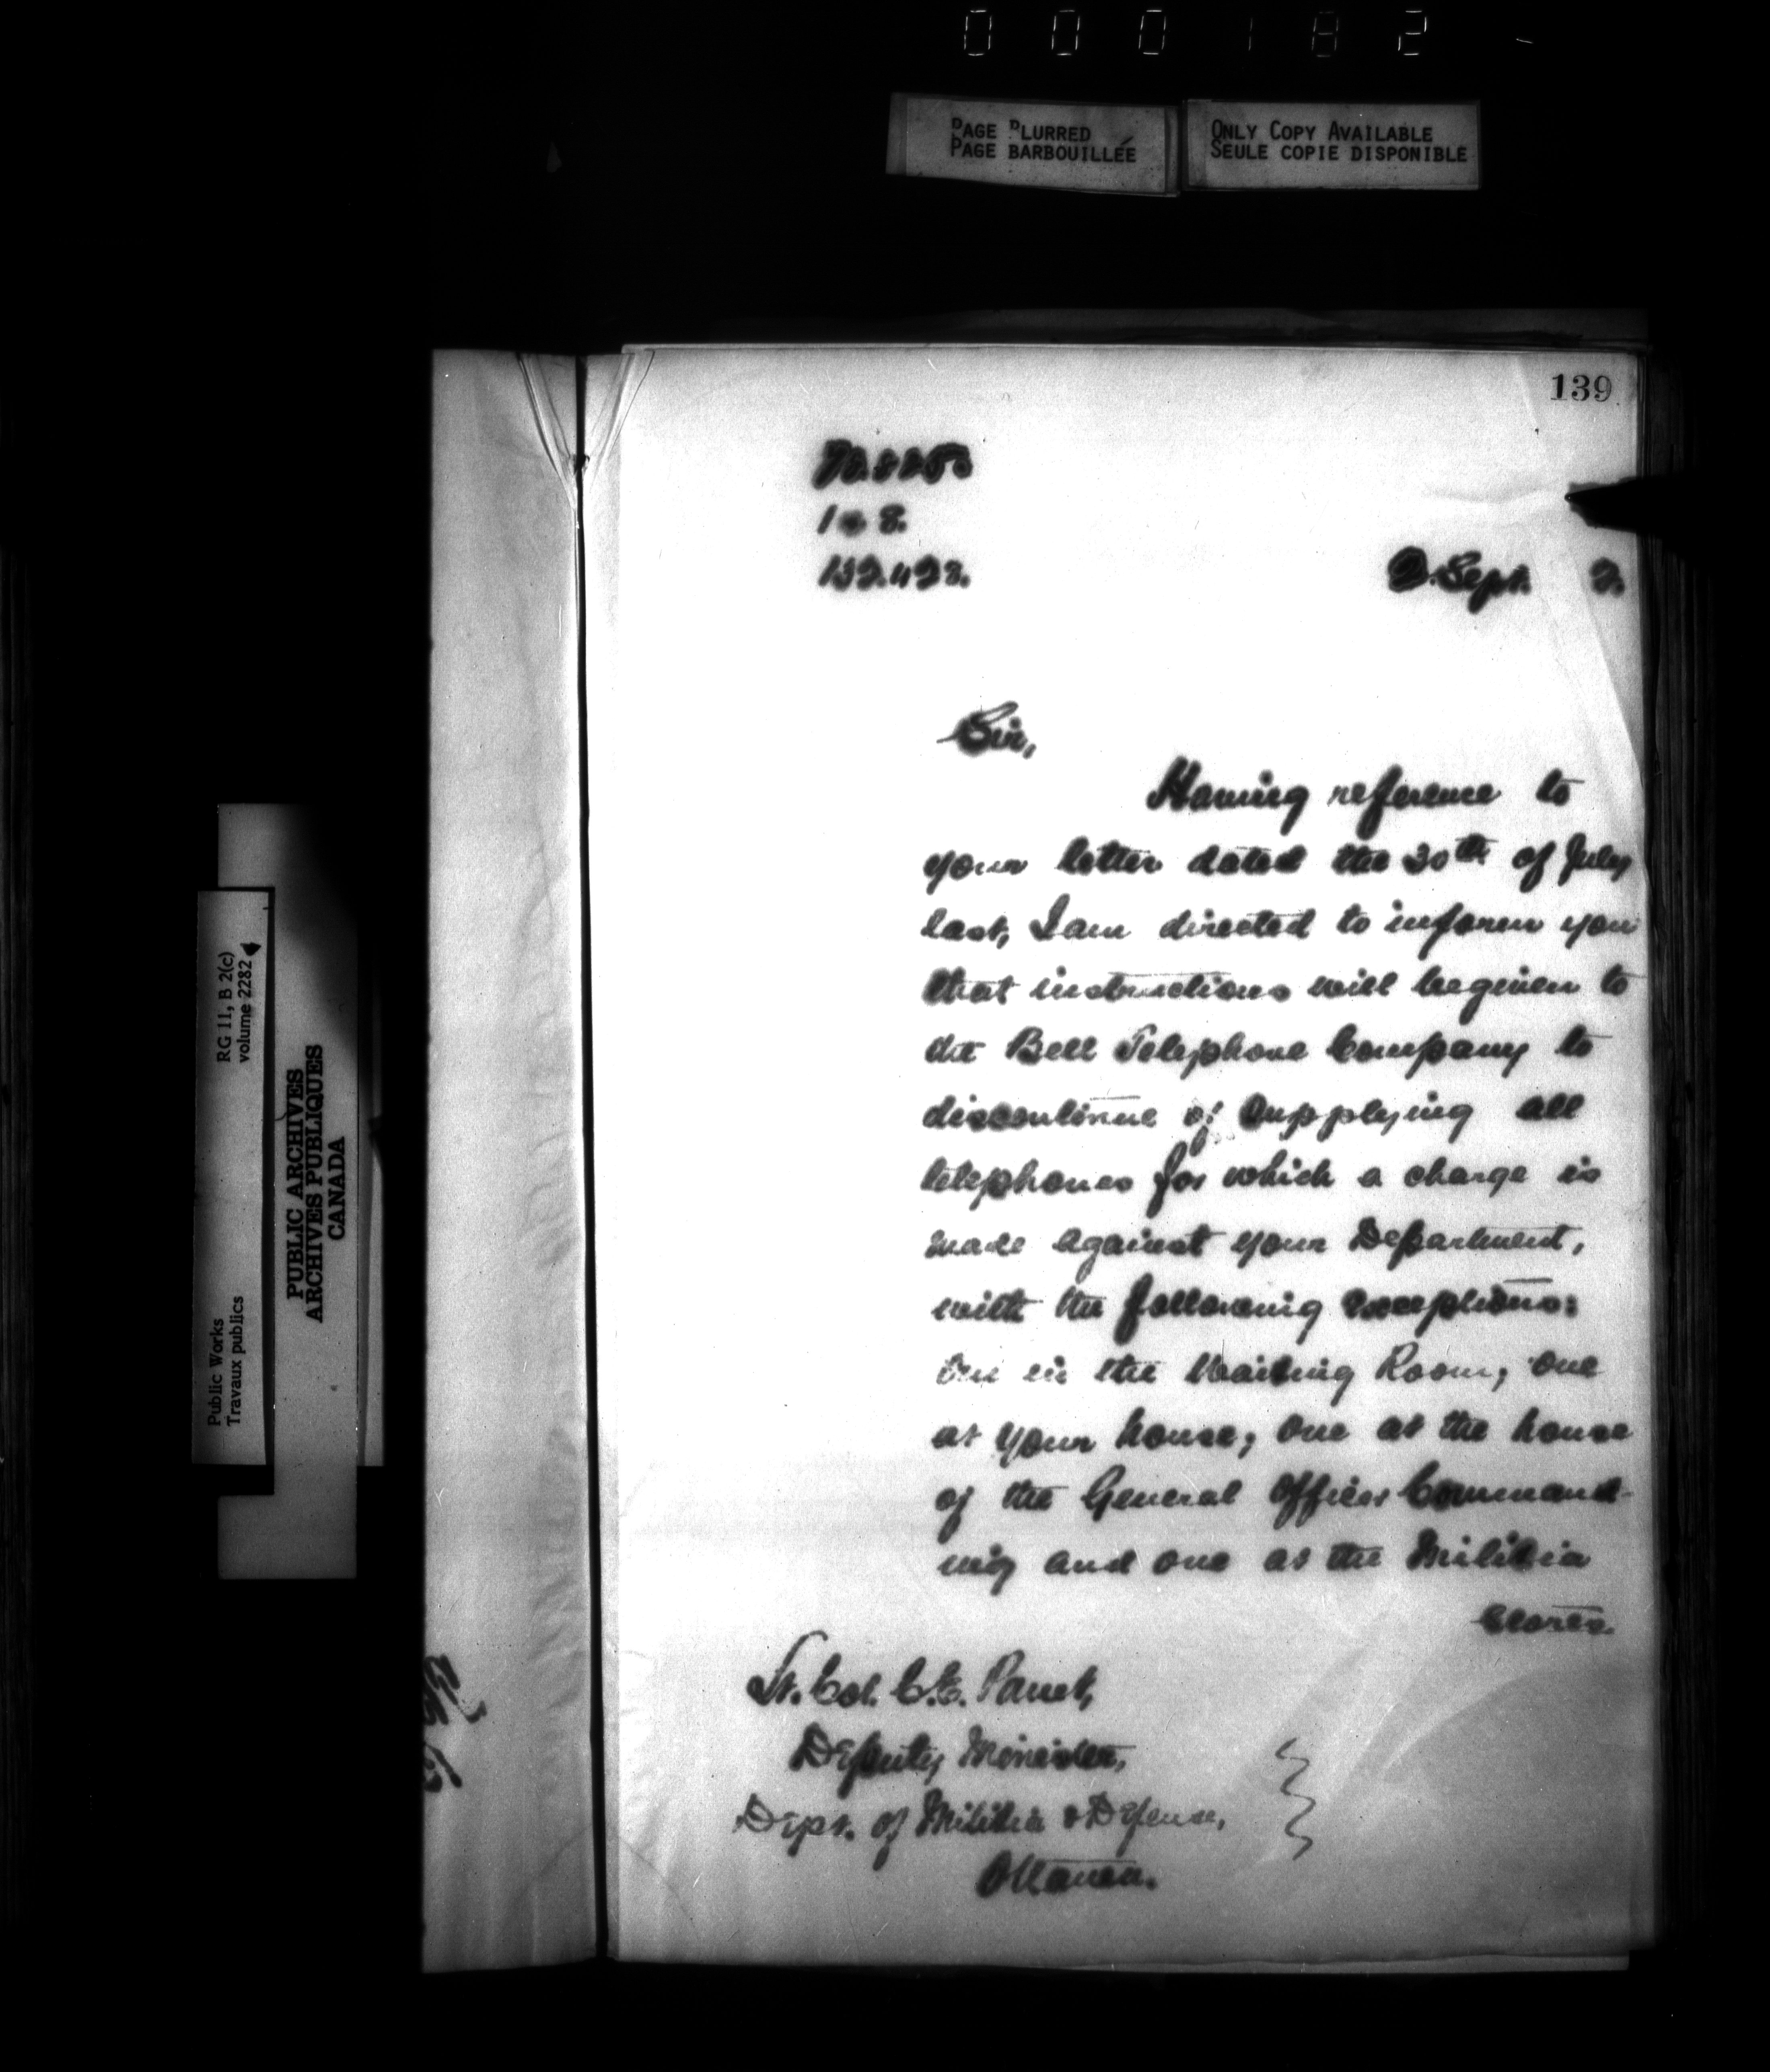 000182
PAGE BLURRED
PAGE BARBOUILLÉE
ONLY COPY AVAILABLE
SEULE COPIE DISPONIBLE
139
2 Sept. 2.
Sir,
Having reference to
your letter dated the 30th of July
last, I am directed to inform you
that instructions will be given to
the Bell Telephone Company to
discontinue of supplying all
telephones for which a charge is
made against your Department,
with the following exceptions:
One in the Waiting Room; one
at your house; one at the house
of the General Officer Command-
ing and one at the Militia
Stores.
Lt. Col. C. E. Panet,
Deputy Minister,
Dept. of Militia & Defense,
Ottawa.
RG 11, B 2(c)
volume 2282
Public Works
Travaux publics
PUBLIC ARCHIVES
ARCHIVES PUBLIQUES
CANADA